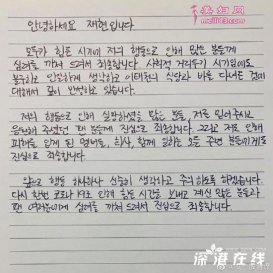 美妇网
meifu113.com
안녕하세요 재현입니다.
모두가 힘든 시기에 저의 행동으로 인해 많은 분들께
심려를 끼쳐 드려서 죄송합니다. 사회적 거리두기 시기임에도
불구하고 안일하게 생각하고 이태원의 식당과 바를 다녀온 점에
대해서 깊이 반성하고 있습니다.
저의 행동으로 인해 실망하셨을 많은 분들, 저를 믿어주시고
응원해 주셨던 팬 분들께 진심으로 죄송합니다. 그리고 저로 인해
피해를 입게 된 멤버들, 회사, 함께 일하는 모든 주변 분들에게도
진심으로 죄송합니다.
앞으로 행동 하나하나 신중히 생각하고 주의하도록 하겠습니다.
다시 한번 코로나 19로 인해 힘든 시간을 보내고 계신 많은 분들과
팬 여러분에게 심려를 끼쳐 드려서 진심으로 죄송합니다.
深港在线